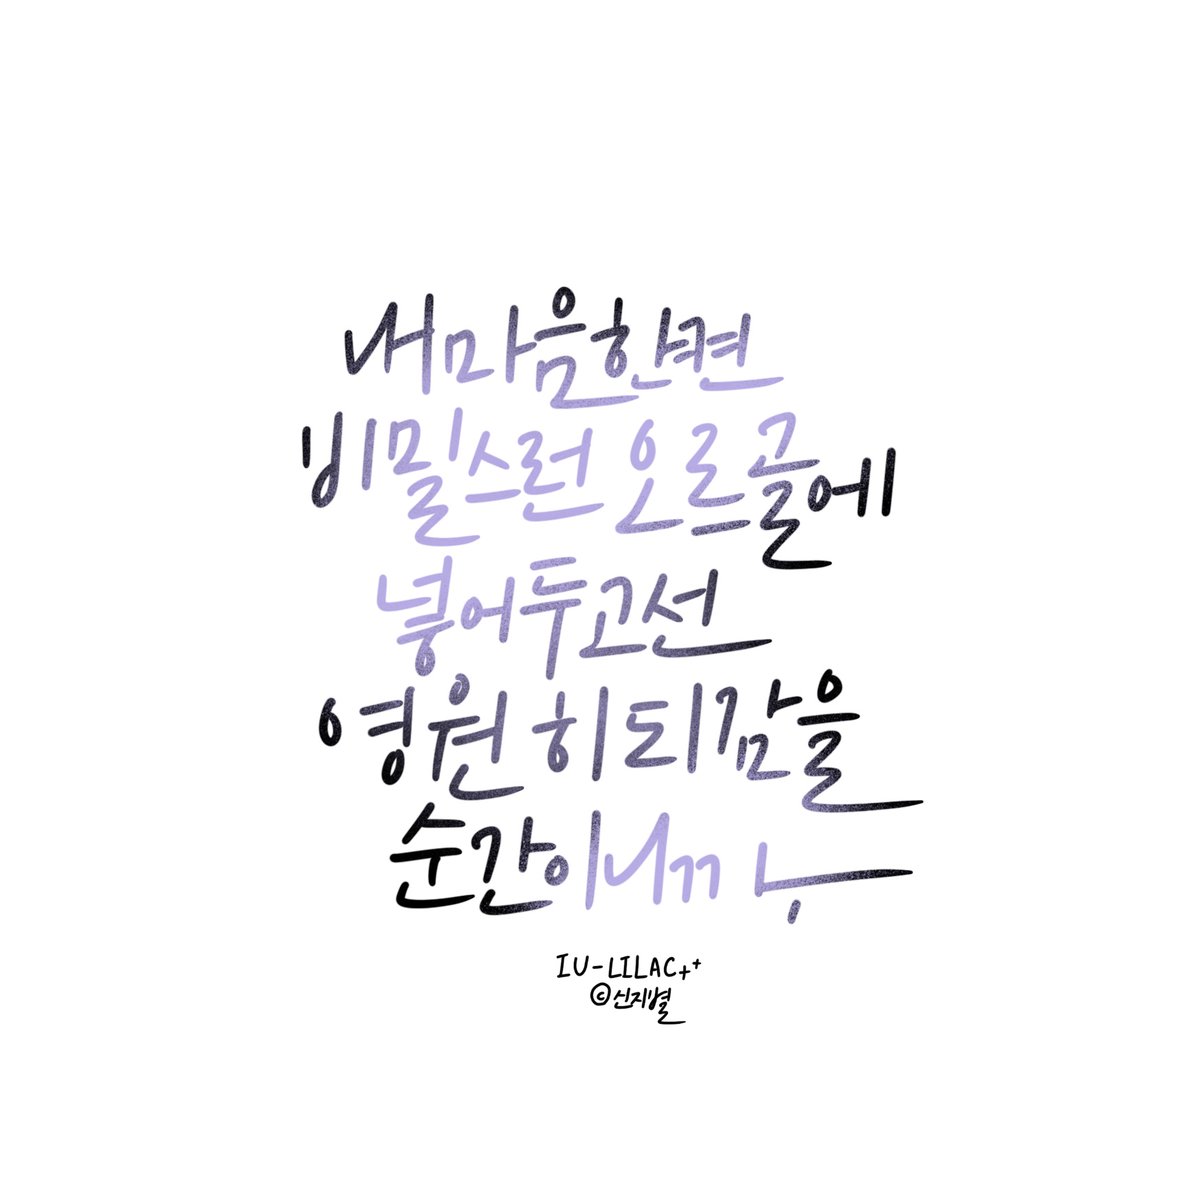 내 마음 한켠
비밀스런 오르골에
넣어두고선
영원히 되감을
순간이니까,
IU-LILAC++
©신지별